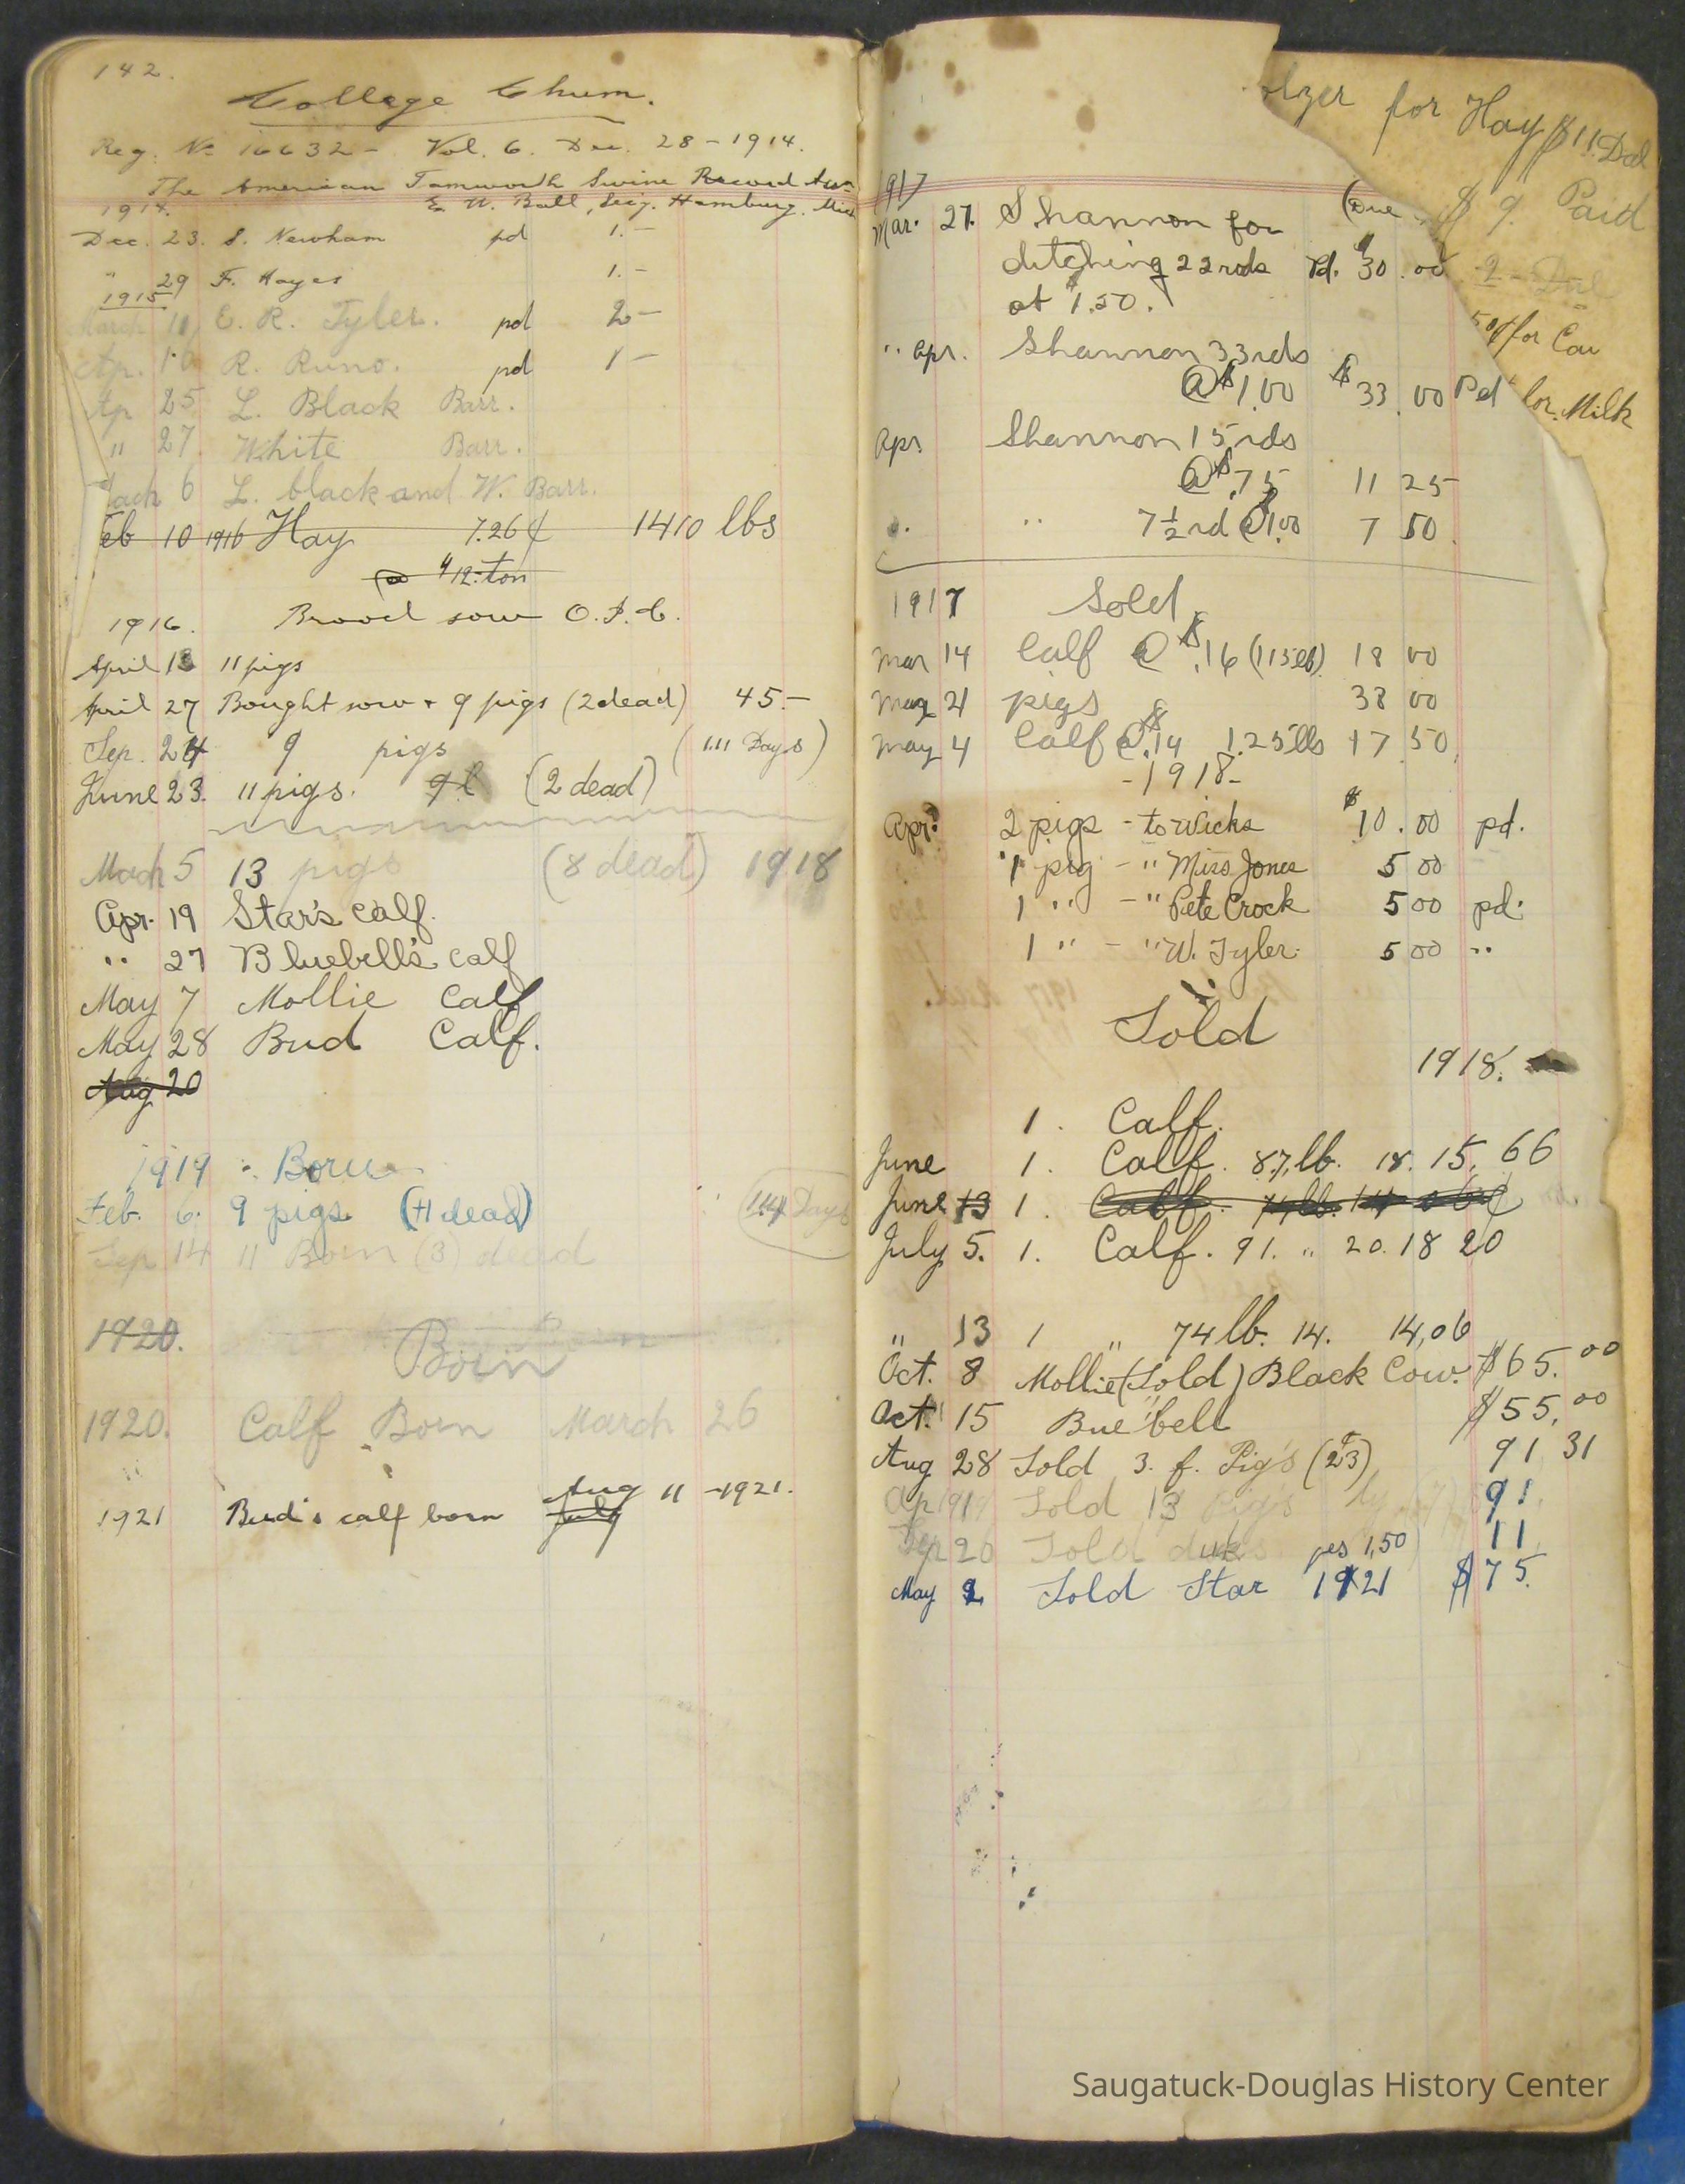 142.
College Chum.
Reg. No 16632 - Vol. 6. Dec. 28 - 1914.
The American Tamworth Swine Record Assn
1914. E. N. Ball, Secy. Hamburg, Mich
Dec. 23. S. Newham pd 1.-
" 29 F. Hayes 1.-
1915
March 11 E. R. Tyler. pd 2-
Ap. 10 R. Runo. pd 1-
Ap 25 L. Black Barr.
" 27. White Barr.
6 L. black and W. Barr.
Feb 10 1916 Hay 7.26¢ 1410 lbs
@ $12. ton
1916. Brood sow O.I.C.
April 13 11 pigs
April 27 Bought sow + 9 pigs (2 dead) 45.-
Sep. 24 9 pigs (111 Days)
June 23. 11 pigs. (2 dead)
Mach 5 13 pigs (8 dead) 1918
Apr. 19 Star's calf.
" 27 Bluebell's calf
May 7 Mollie Calf
May 28 Bud Calf.
Aug 20
1919 Born
Feb. 6. 9 pigs (+1 dead) (114 Days
Sep 14 11 Born (3) dead
1920. Born
1920. Calf Born March 26
1921 Bud's calf born July Aug 11 - 1921.
olzer for Hay $11. Dol
$ 9. Paid
2 - Dol
50¢ for Cow
for Milk
1917
Mar. 27. Shannon for (Due
ditching 22 rods Pd. $30.00
at $1.50.
" Apr. Shannon 33 rds
@ $1.00 $33.00 Pd
Apr. Shannon 15 rds
@ $.75 11 25
" " 7 1/2 rd @ $1.00 7 50.
1917 Sold
Mar 14 Calf @ $.16 (113 lb) 18 00
May 21 pigs 38 00
May 4 Calf @ $.14 125 lbs 17.50.
- 1918 -
Apr. 2 pigs - to Wicks $10.00 pd.
1 pig - " Miss Jones 5 00
1 " - " Pete Crock 5 00 pd.
1 " - " W. Tyler. 5 00 "
Sold
1918.
1. Calf.
June 1. Calf. 87, lb. 18. 15, 66
June 13 1. Calf. 74 lb.
July 5. 1. Calf. 91. " 20. 18 20
" 13 1 " 74 lb. 14. 14,06
Oct. 8 Mollie (Sold) Black Cow. $65.00
Oct. 15 Bue"bell $55,00
Aug 28 Sold 3. f. Pig's (23) 91 31
Ap 1919 Sold 13 Pigs 91
Sep 20 Sold duks 1,50 11
May 2 Sold Star 1921 $75.
Saugatuck-Douglas History Center